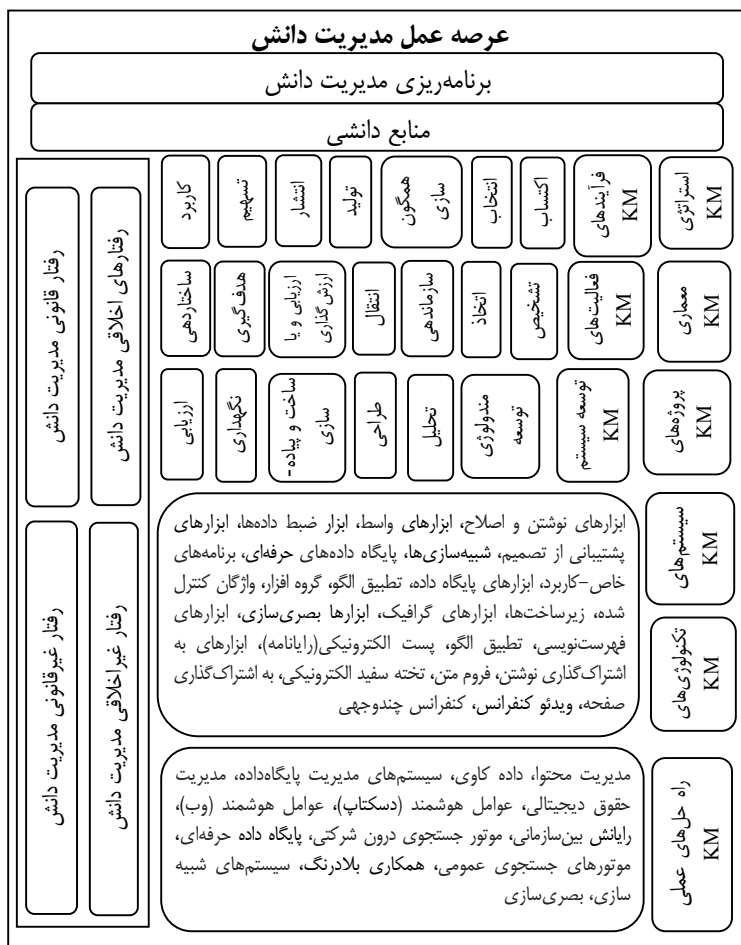 عرصه عمل مدیریت دانش
برنامه‌ریزی مدیریت دانش
منابع دانشی
استراتژی
KM
فرآیندهای
KM
اکتساب
انتخاب
همگون
سازی
تولید
انتشار
تسهیم
کاربرد
معماری
KM
فعالیت‌های
KM
تشخیص
اتخاذ
سازماندهی
انتقال
ارزیابی و یا
ارزش گذاری
هدف‌گیری
ساختاردهی
پروژه‌های
KM
توسعه سیستم
KM
توسعه
مندولوژی
تحلیل
طراحی
ساخت و پیاده-
سازی
نگهداری
ارزیابی
سیستم‌های
KM
تکنولوژی‌های
KM
ابزارهای نوشتن و اصلاح، ابزارهای واسط، ابزار ضبط داده‌ها، ابزارهای
پشتیبانی از تصمیم، شبیه‌سازی‌ها، پایگاه داده‌های حرفه‌ای، برنامه‌های
خاص-کاربرد، ابزارهای پایگاه داده، تطبیق الگو، گروه افزار، واژگان کنترل
شده، زیرساخت‌ها، ابزارهای گرافیک، ابزارها بصری‌سازی، ابزارهای
فهرست‌نویسی، تطبیق الگو، پست الکترونیکی(رایانامه)، ابزارهای به
اشتراک‌گذاری نوشتن، فروم متن، تخته سفید الکترونیکی، به اشتراک‌گذاری
صفحه، ویدئو کنفرانس، کنفرانس چندوجهی
راه حل‌های عملی
KM
مدیریت محتوا، داده کاوی، سیستم‌های مدیریت پایگاه‌داده، مدیریت
حقوق دیجیتالی، عوامل هوشمند (دسکتاپ)، عوامل هوشمند (وب)،
رایانش بین‌سازمانی، موتور جستجوی درون شرکتی، پایگاه داده حرفه‌ای،
موتورهای جستجوی عمومی، همکاری بلادرنگ، سیستم‌های شبیه
سازی، بصری‌سازی
رفتارهای اخلاقی مدیریت دانش
رفتار قانونی مدیریت دانش
رفتار غیراخلاقی مدیریت دانش
رفتار غیرقانونی مدیریت دانش